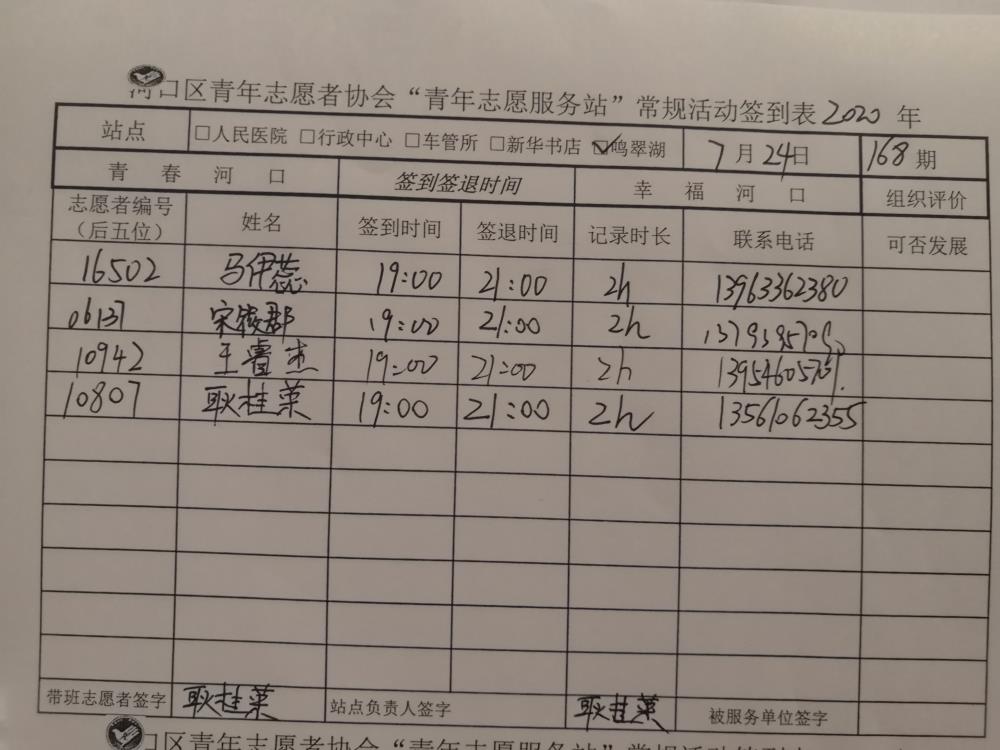 河口区青年志愿者协会“青年志愿服务站”常规活动签到表2020年
站点 □人民医院 □行政中心 □车管所 □新华书店 ☑鸣翠湖 7月24日 168期
青春河口 签到签退时间 幸福河口 组织评价
志愿者编号（后五位） 姓名 签到时间 签退时间 记录时长 联系电话 可否发展
16502 马伊蕊 19:00 21:00 2h 13963362380
06137 宋绫郡 19:00 21:00 2h
10942 王睿杰 19:00 21:00 2h
10807 耿桂菜 19:00 21:00 2h 13561062355
带班志愿者签字 耿桂菜 站点负责人签字 耿桂菜 被服务单位签字
口区青年志愿者协会“青年志愿服务站”常规活动签到